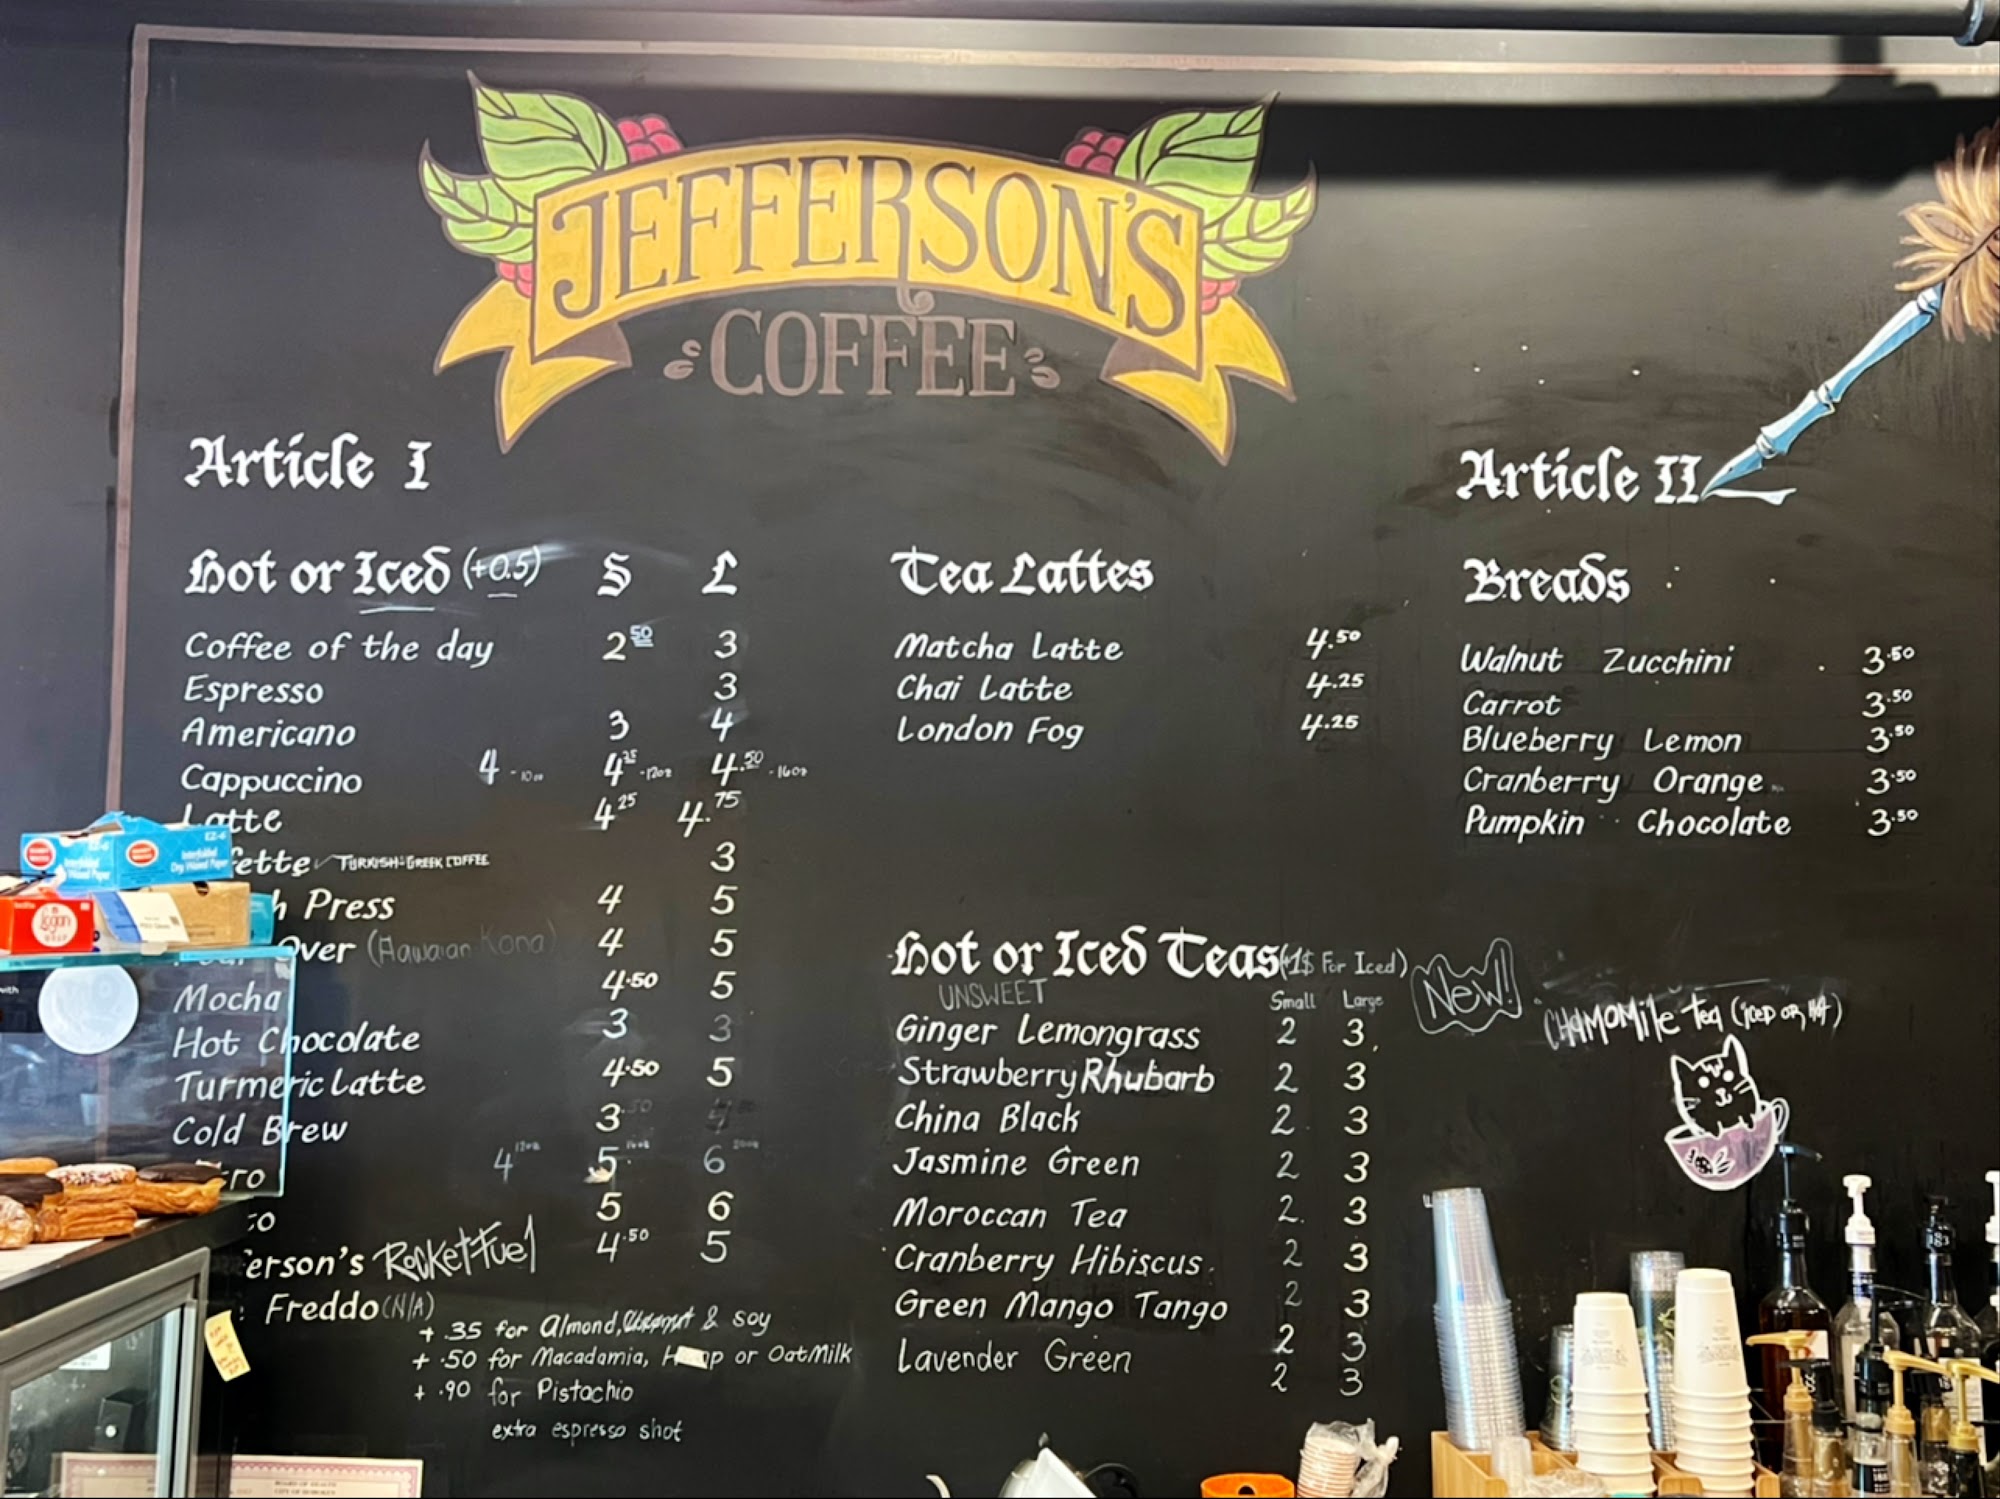 JEFFERSON'S
COFFEE
Article I
Hot or Iced (+0.5) S L
Coffee of the day 2.50 3
Espresso 3
Americano 3 4
Cappuccino 4 -10oz 4.25 -12oz 4.50 -16oz
Latte 4.25 4.75
fette TURKISH-GREEK COFFEE 3
h Press 4 5
Over (Hawaiian Kona) 4 5
Mocha 4.50 5
Hot Chocolate 3 3
Turmeric Latte 4.50 5
Cold Brew 3.50
tro 4 12oz 5 16oz 6 20oz
to 5 6
erson's Rocket-Fuel 4.50 5
Freddo (N/A)
+ .35 for Almond, & soy
+ .50 for Macadamia, H p or OatMilk
+ .90 for Pistachio
extra espresso shot
Tea Lattes
Matcha Latte 4.50
Chai Latte 4.25
London Fog 4.25
Hot or Iced Teas (+1$ For Iced)
UNSWEET Small Large
Ginger Lemongrass 2 3
Strawberry Rhubarb 2 3
China Black 2 3
Jasmine Green 2 3
Moroccan Tea 2 3
Cranberry Hibiscus 2 3
Green Mango Tango 2 3
Lavender Green 2 3
2 3
New!!
CHAMOMile Tea (iCED OR Hot)
Article II
Breads
Walnut Zucchini 3.50
Carrot 3.50
Blueberry Lemon 3.50
Cranberry Orange 3.50
Pumpkin Chocolate 3.50
EZ-6
Interfolded
Dry Waxed Paper
EZ-6
Interfolded
Waxed Paper
logan
with
BOARD OF HEALTH
CITY OF HOBOKEN